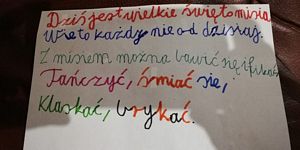 Dziś jest wielkie święto misia
Wie to każdy nie od dzisiaj.
Z misiem można bawić się i fikać
Tańczyć, śmiać się,
Klaskać, brykać.